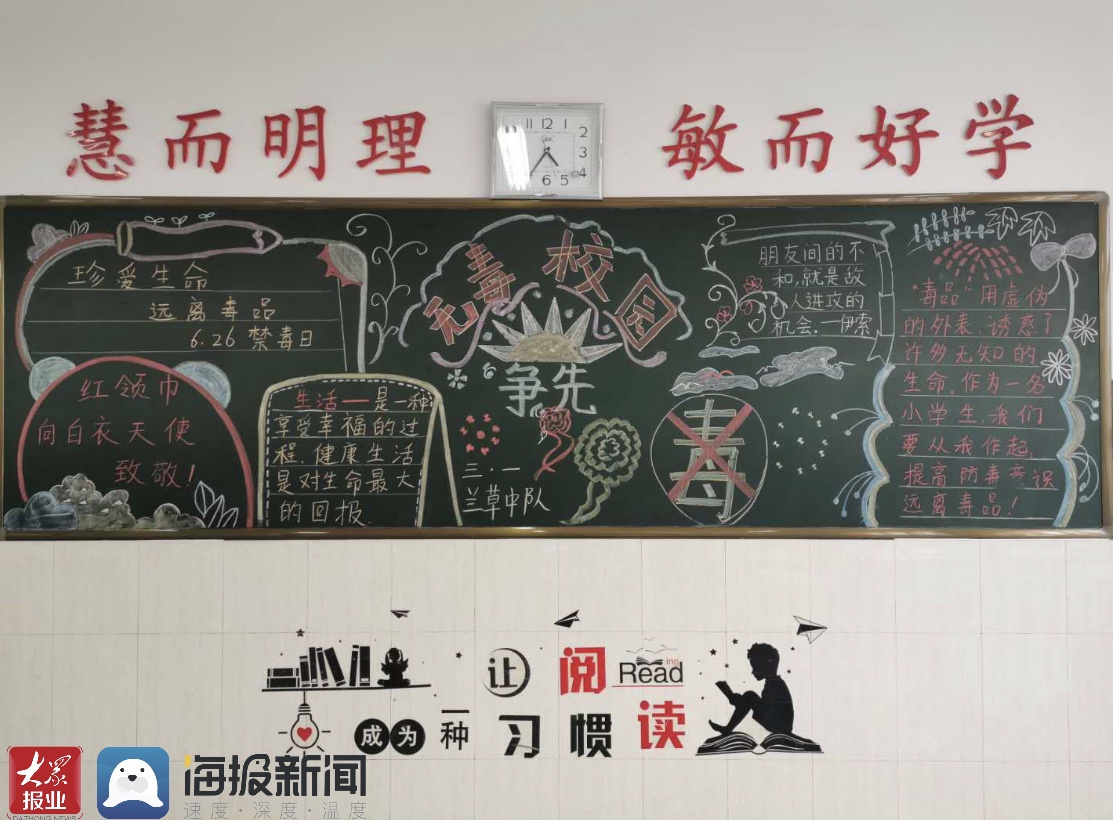 慧而明理
敏而好学
11 12 1
2
3
4
5
6
珍爱生命
远离毒品
6.26禁毒日
红领巾
向白衣天使
致敬!
生活一是一种
享受幸福的过
程.健康生活
是对生命最大
的回报.
无毒校园
争先
三·一
兰草中队
毒
朋友间的不
和,就是敌
人进攻的
机会.一伊索
"毒品"用虚伪
的外表.诱惑了
许多无知的
生命.作为一名
小学生.我们
要从我作起.
提高防毒意识
远离毒品!
让阅读
Reading
成为一种习惯
大众
报业
DAZHONG NEWS
海报新闻
速度·深度·温度